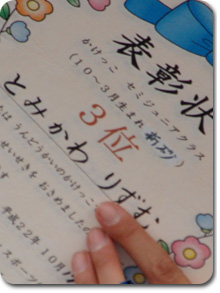 表彰状
かけっこ セミジュニアクラス
(10~3月生まれ
3位
とみかわ りずむ
うんどうかいのかけっこ
せいせきを おさめました
平成22年10月
スポーツ